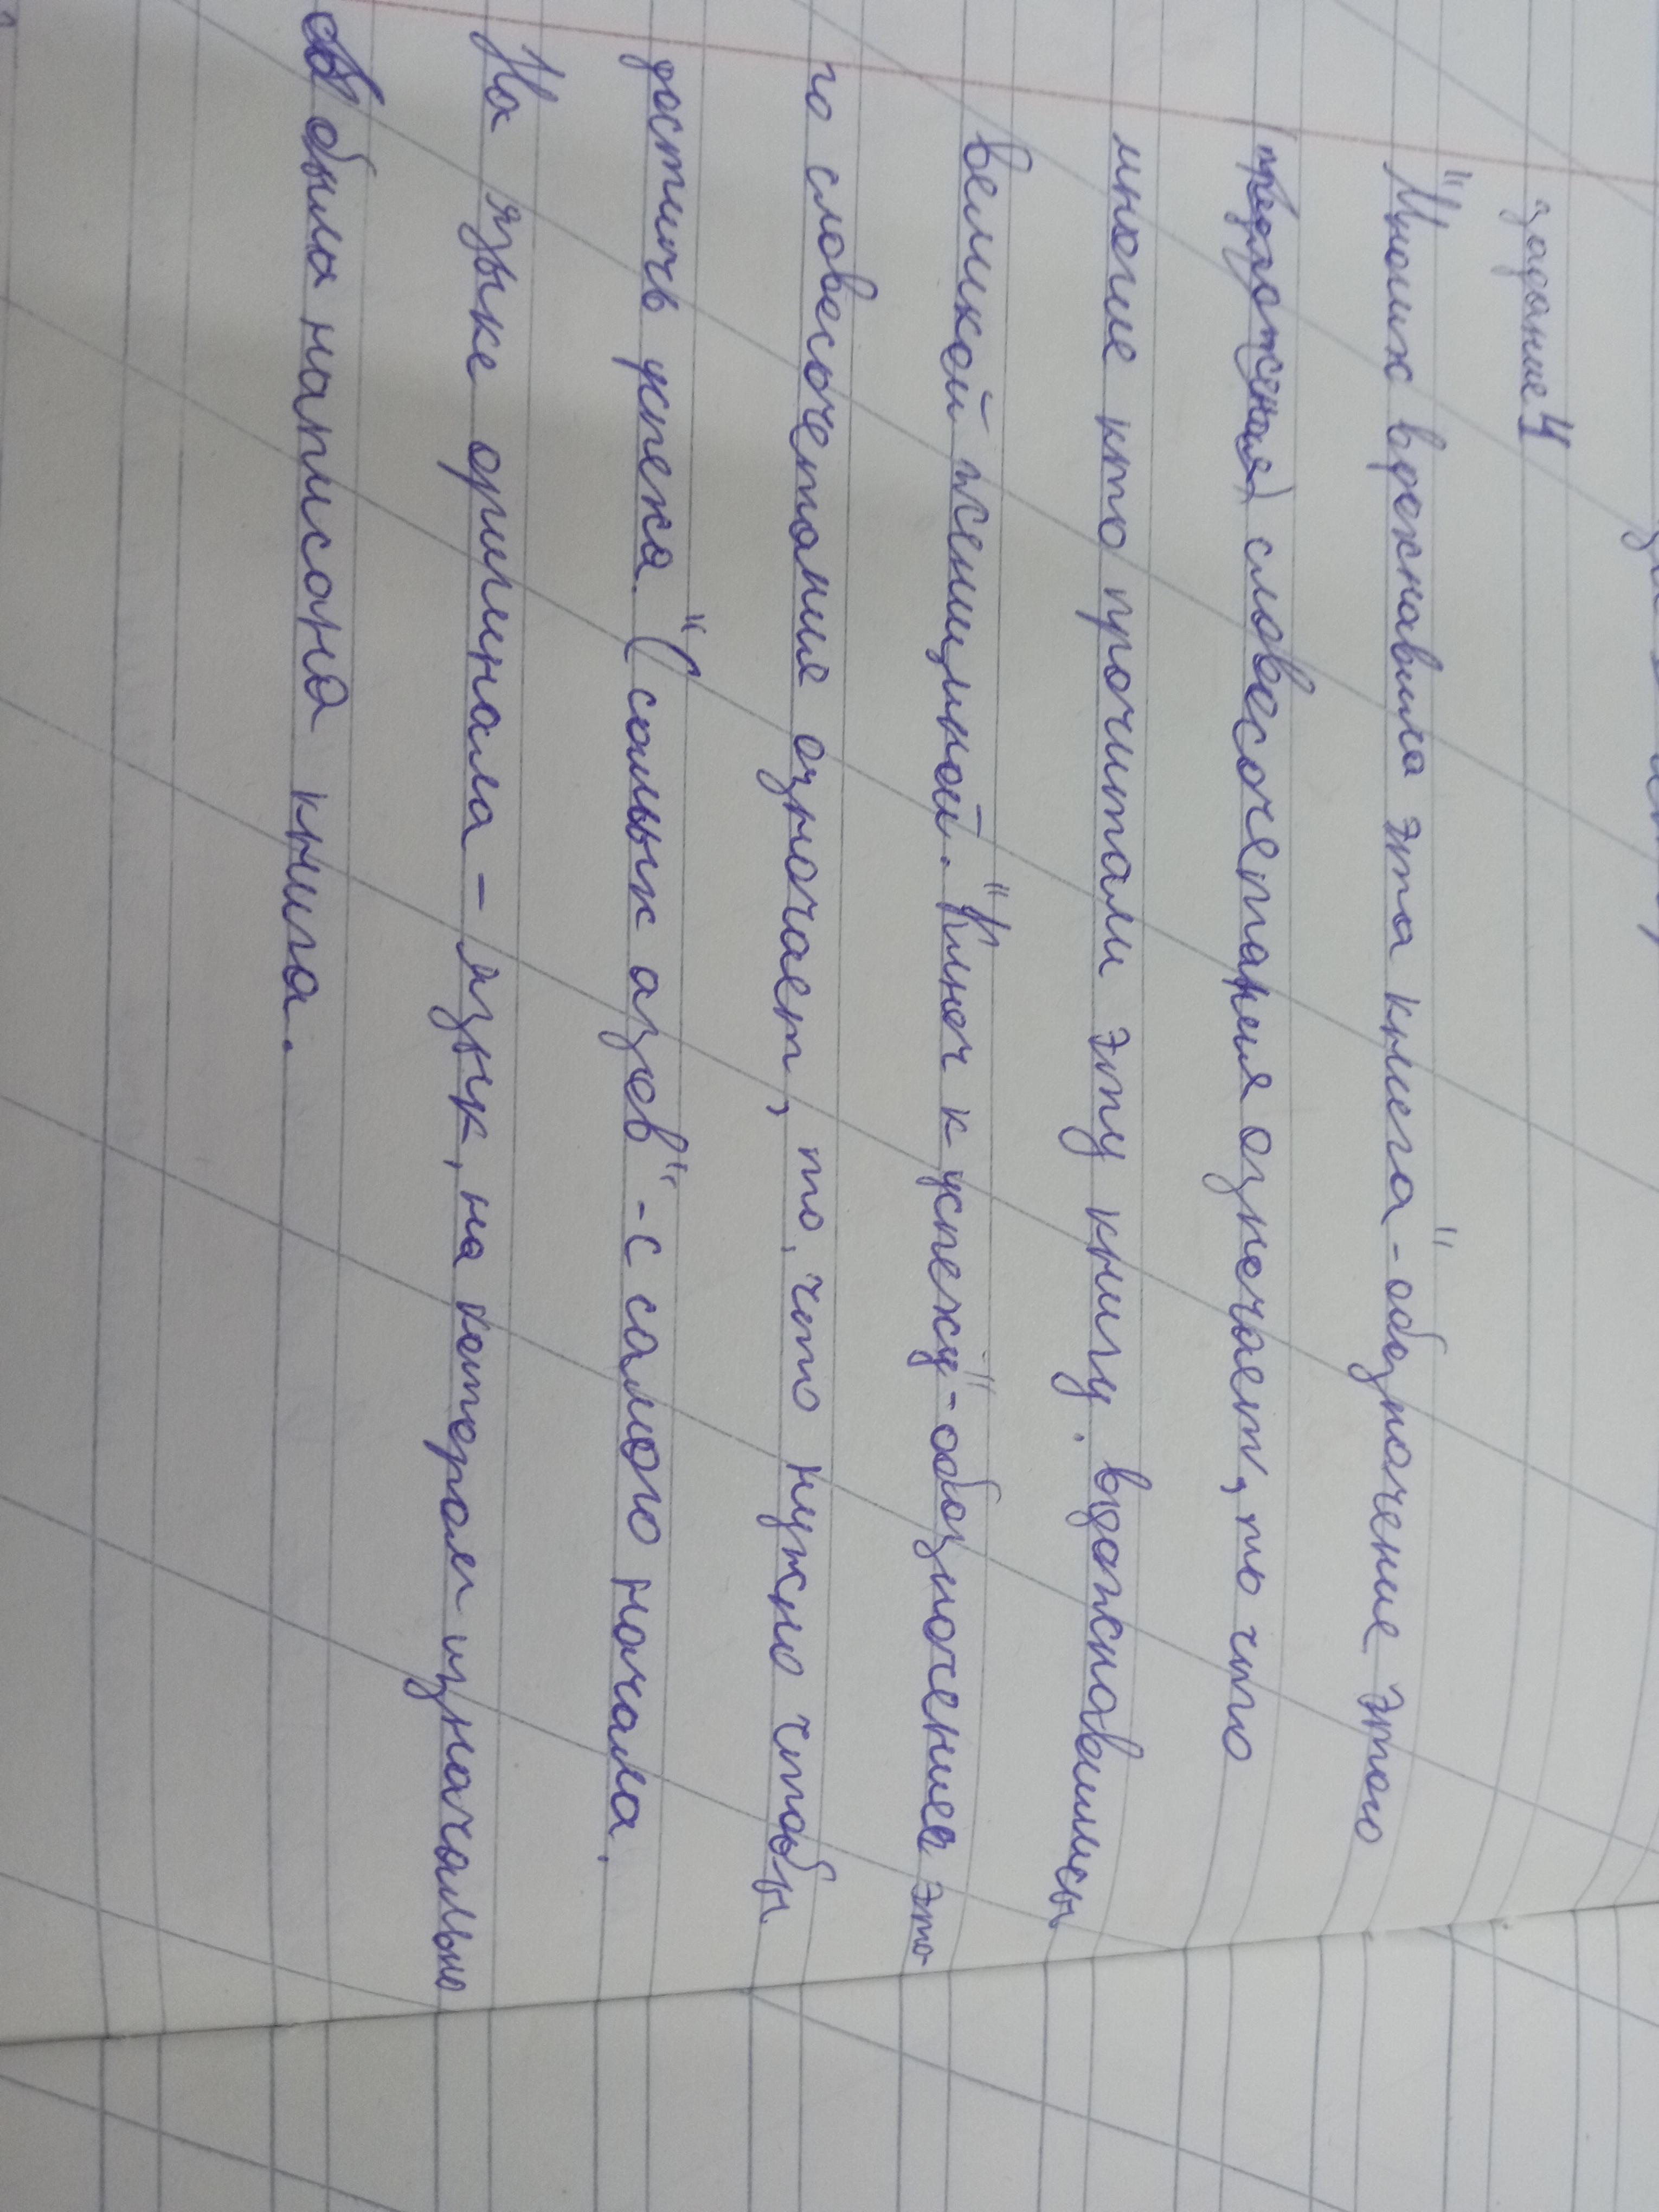 задание 4
"Многих вдохнавила эта книга" - обозначение этого
словесочетания означает, то что
многие кто прочитали эту книгу. вдожнавились
великой женщиной. "Ключ к успеху" - обозночение это
го словесочетания означает, то, что нужно чтобы
достичь успеха. "С самых азов" - с самого начала.
На языке оригинала - язык, на котором изначально
была написана книга.